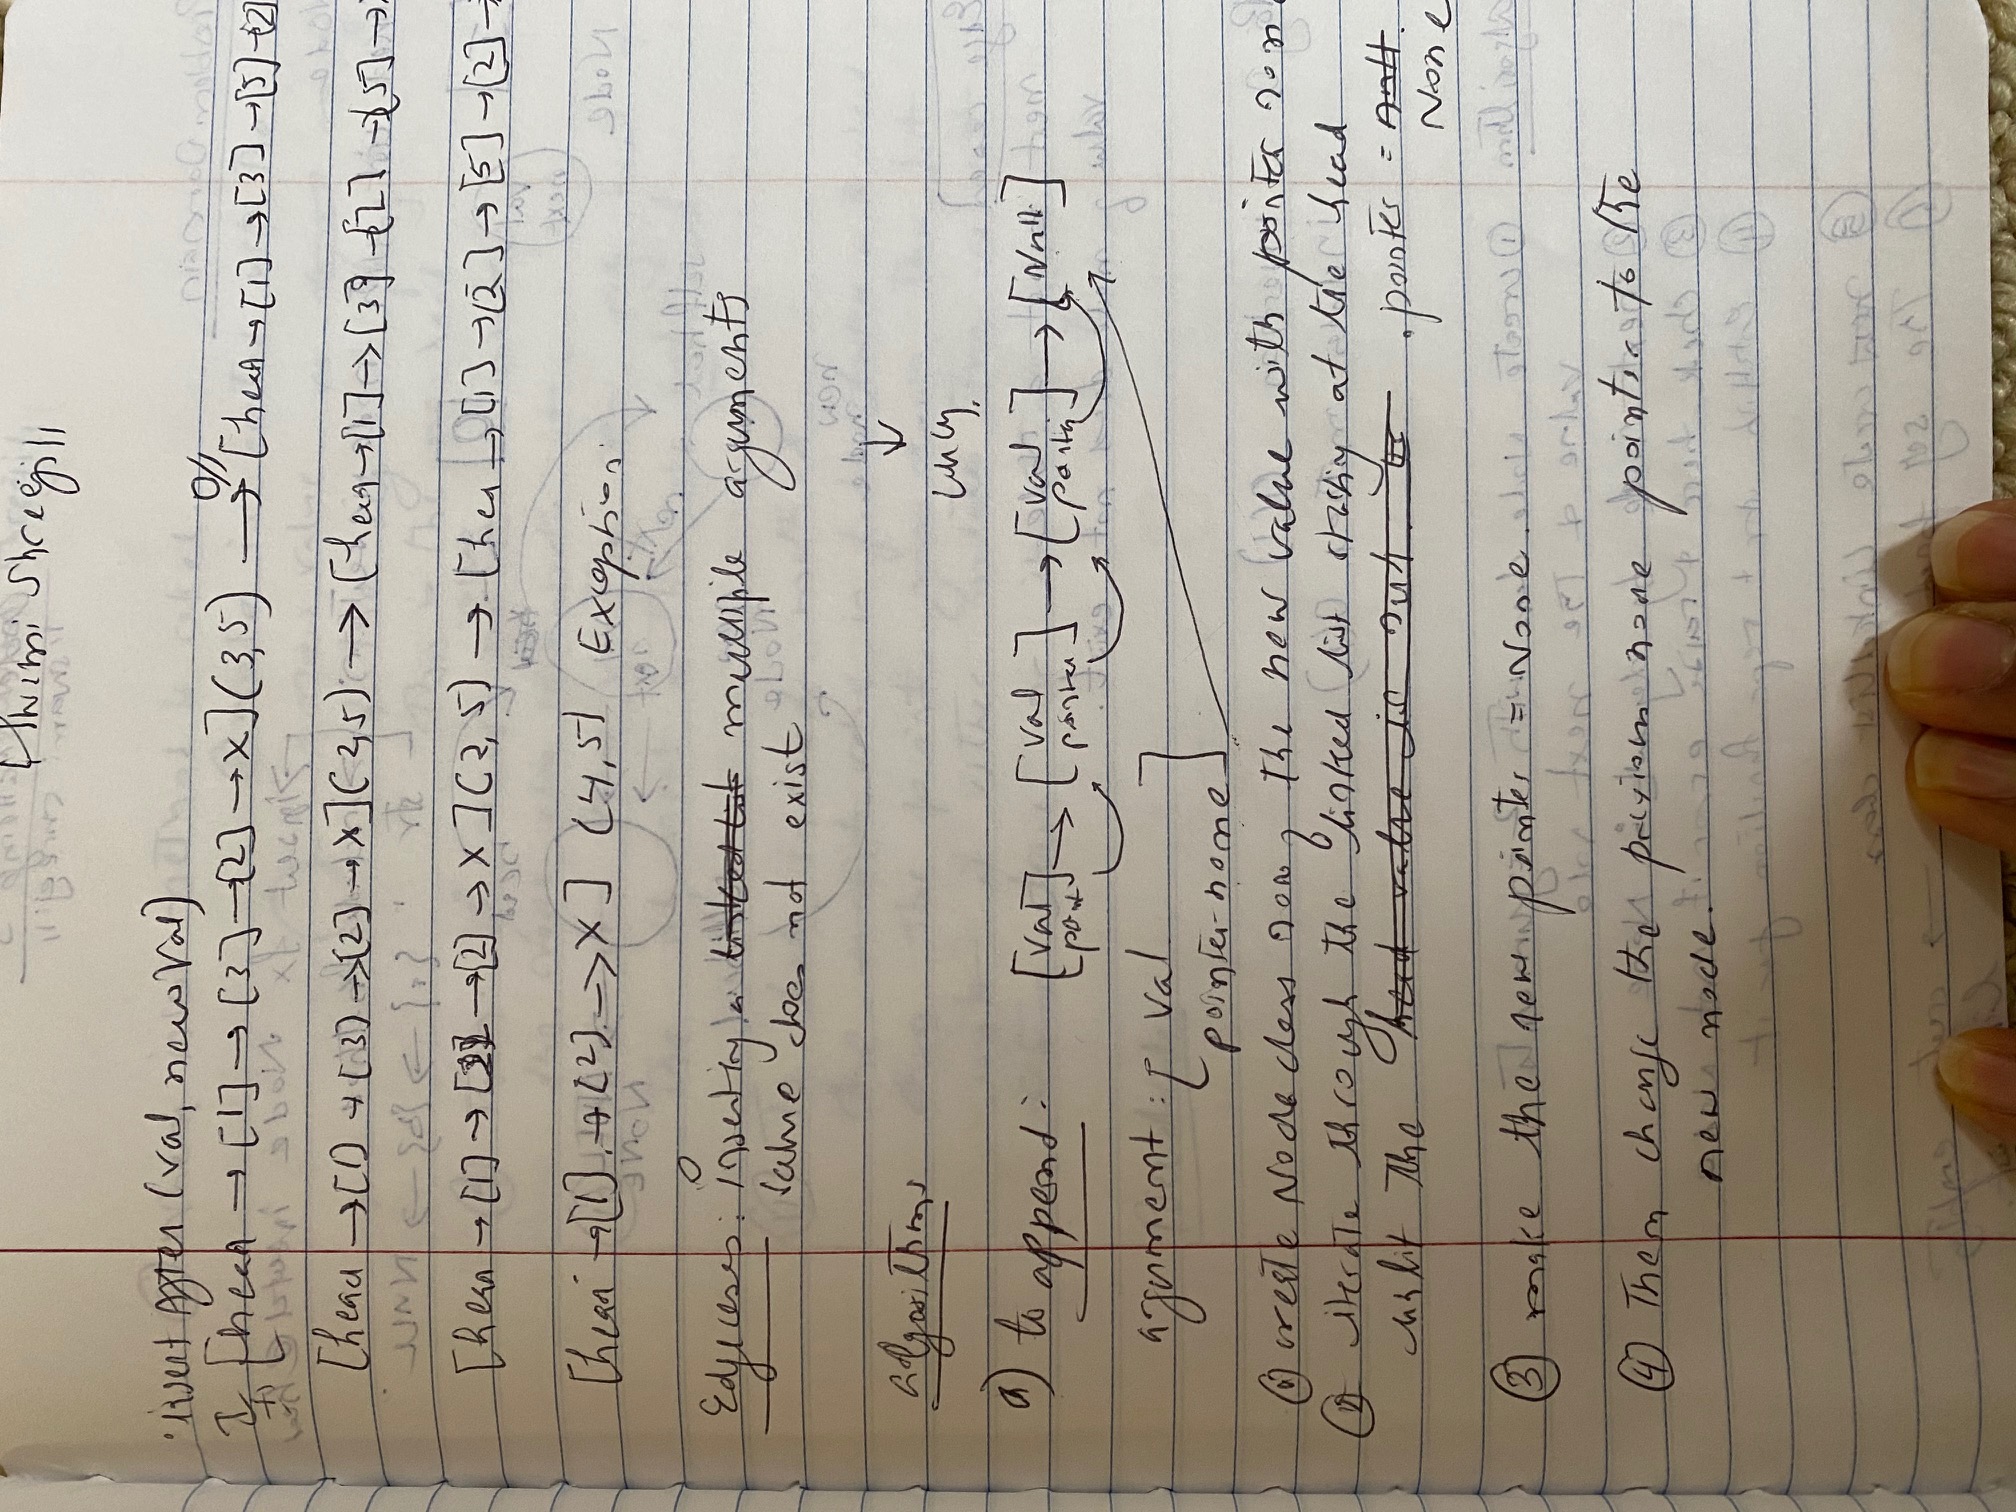 Shreegill
insert After (val, newVal)
I/p [head → [1] → [3] → [2] → X] (3,5) → O/p [head → [1] → [3] → [5] → [2]
[head → [1] → [3] → [2] → X] (2,5) → [head → [1] → [3] → [2] → [5] →
[head → [1] → [2] → [2] → X] (2,5) → [hea → [1] → [2] → [5] → [2] →
[head → [1] → [2] → X] (4,5) Exception
Edjecases: inserting a linked list multiple arguments
value does not exist
algorithms
a) to append: [val point] → [val pointer] → [val pointer] → [Null]
argument: [val
pointer-none]
① create Node class the new value with pointer non
② iterate through the linked list starting at the head
until the head value is null .pointer = null
None
③ make the new pointer = None.
④ Then change the previous none pointer to the
new node.